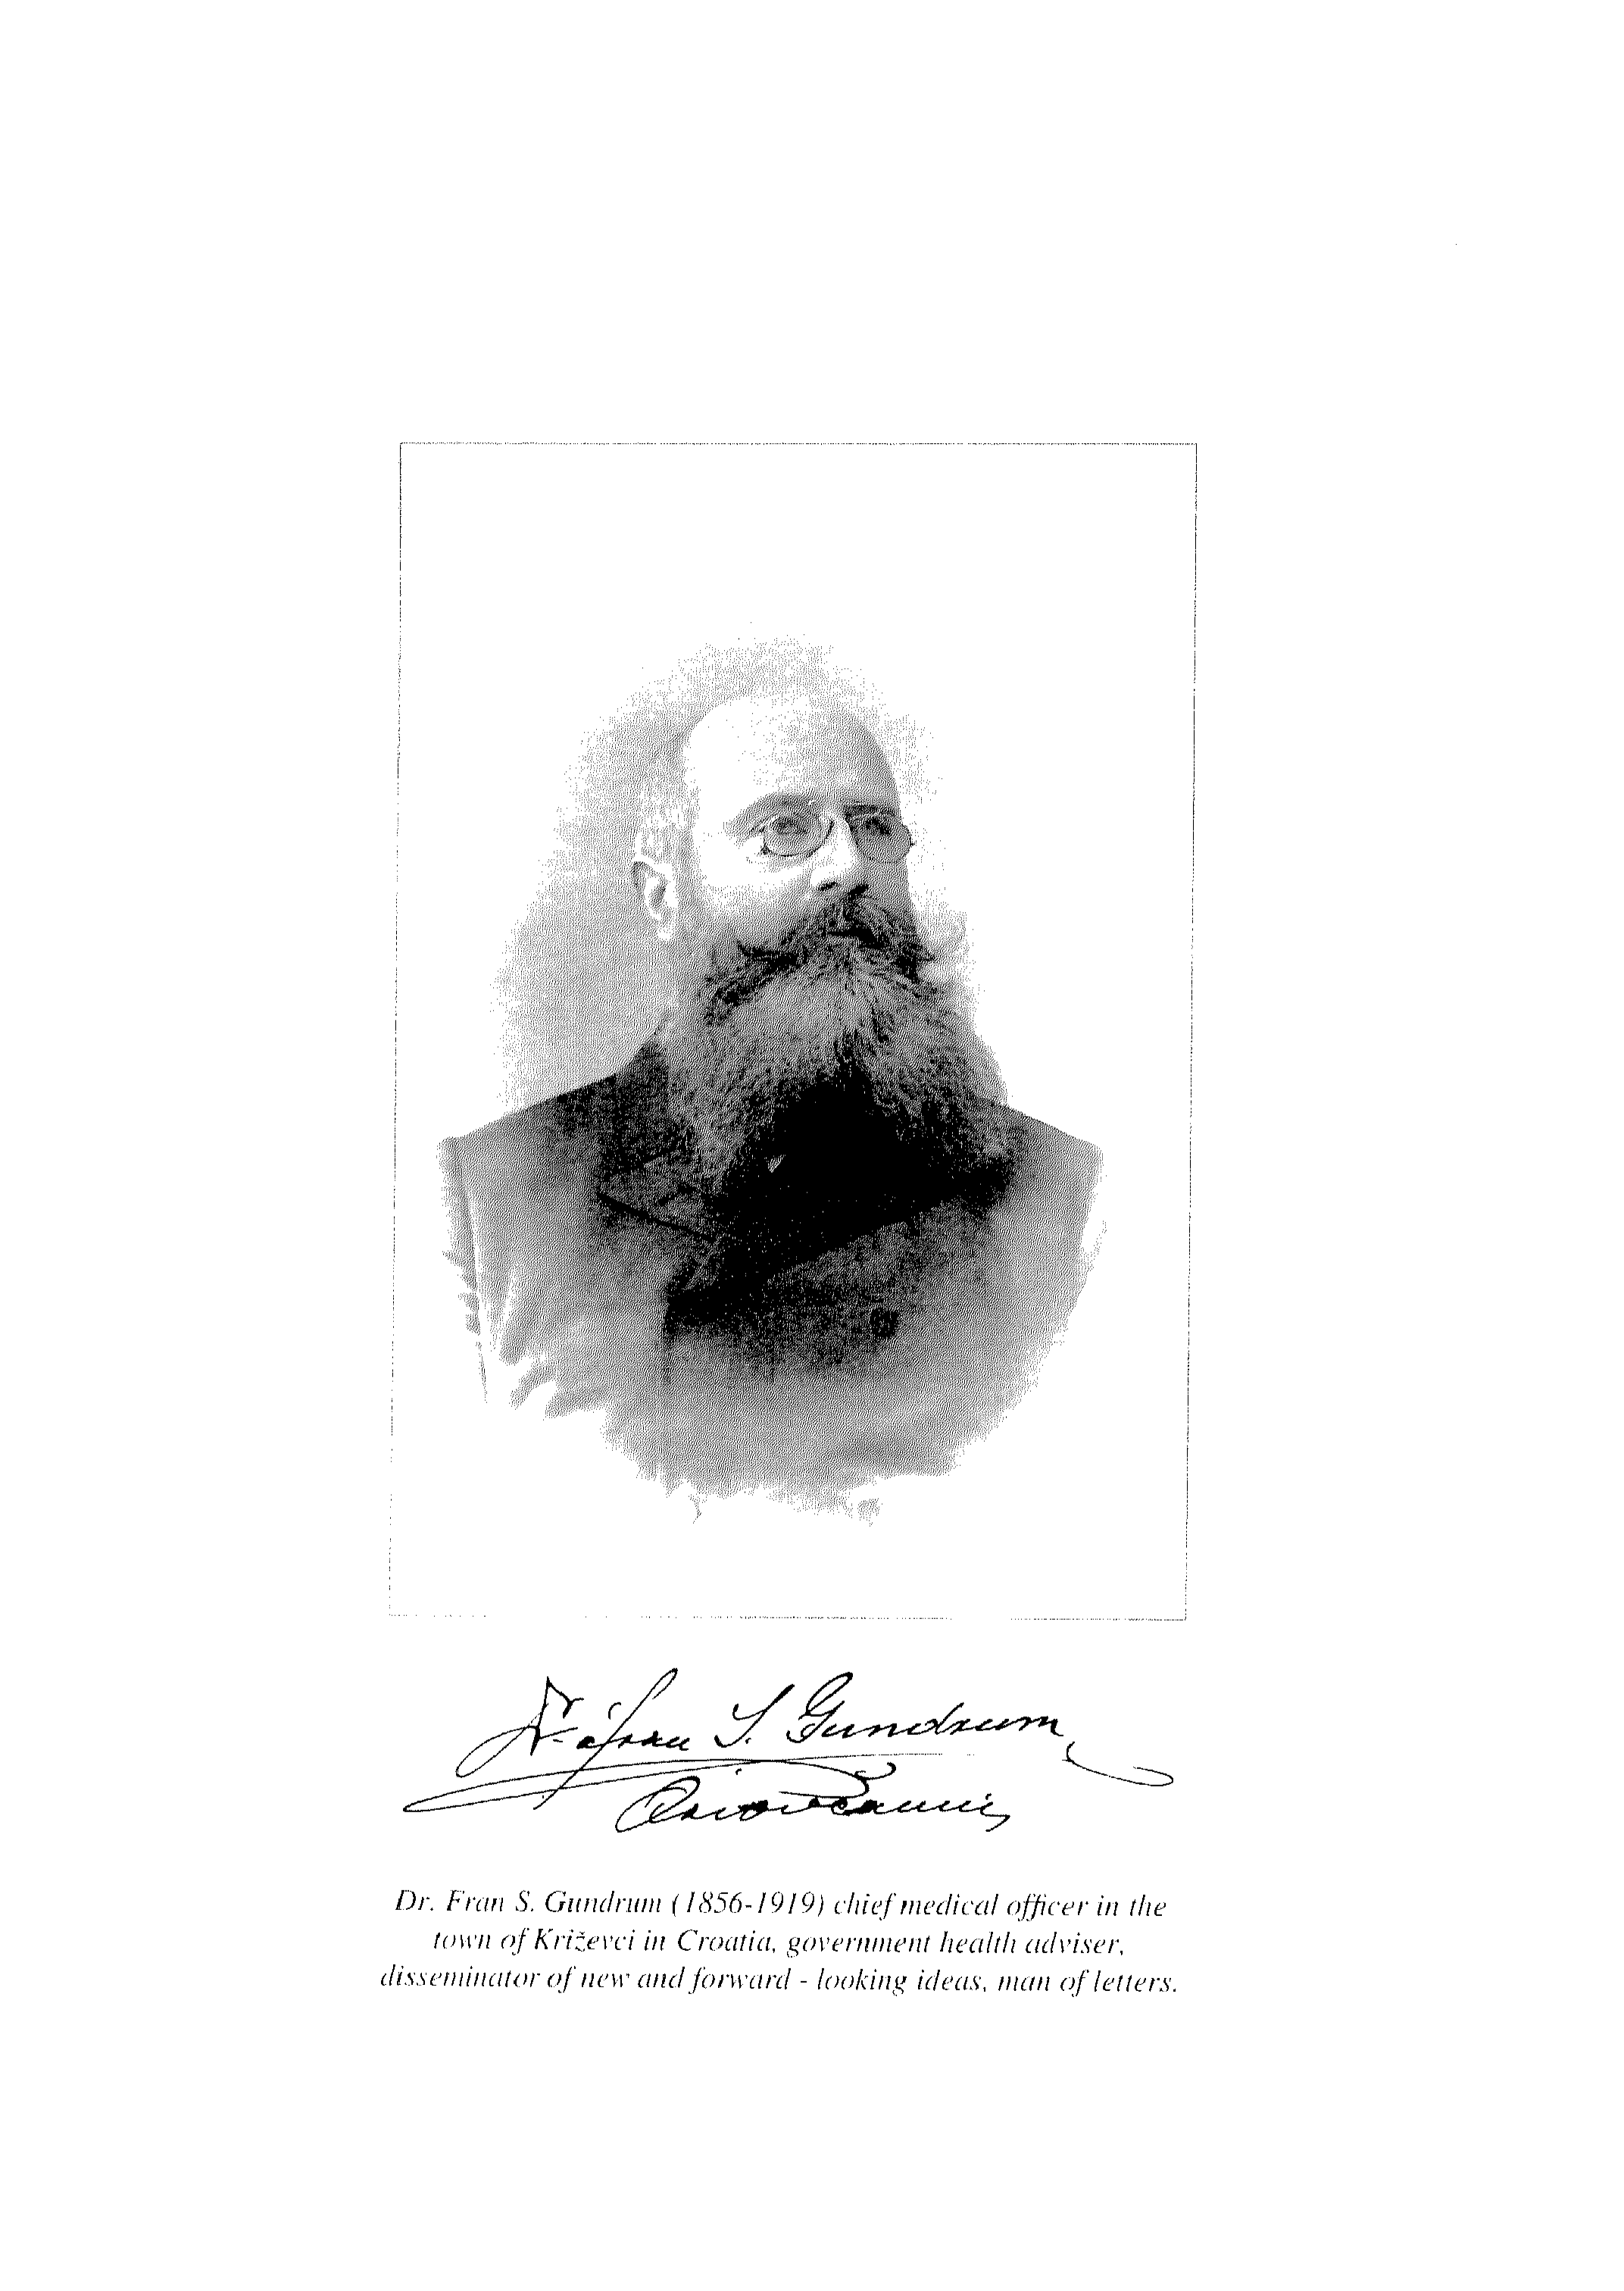 Dr. Fran S. Gundrum
Oriovčanin
Dr. Fran S. Gundrum (1856-1919) chief medical officer in the
town of Križevci in Croatia, government health adviser,
disseminator of new and forward - looking ideas, man of letters.